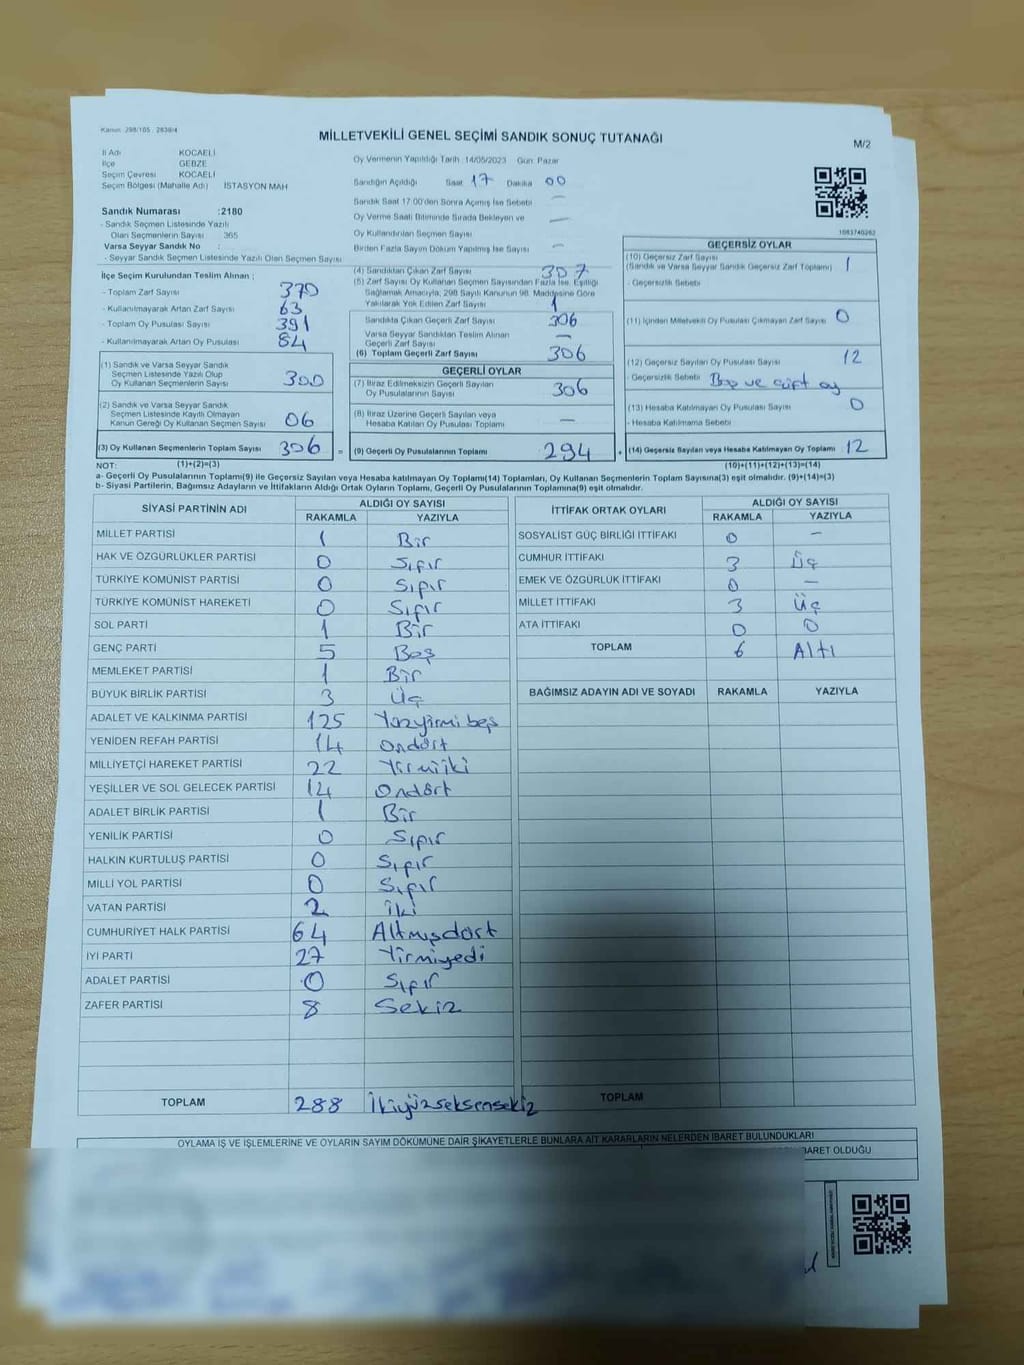 Kanun: 298/105 , 2839/4
MİLLETVEKİLİ GENEL SEÇİMİ SANDIK SONUÇ TUTANAĞI
M/2
İl Adı KOCAELİ
İlçe GEBZE
Seçim Çevresi KOCAELİ
Seçim Bölgesi (Mahalle Adı) İSTASYON MAH
Oy Vermenin Yapıldığı Tarih 14/05/2023 Gün: Pazar
Sandığın Açıldığı Saat 17 Dakika 00
Sandık Saat 17:00'den Sonra Açılmış İse Sebebi —
Oy Verme Saati Bitiminde Sırada Bekleyen ve
Oy Kullandırılan Seçmen Sayısı —
Birden Fazla Sayım Döküm Yapılmış İse Sayısı —
1083740262
Sandık Numarası :2180
- Sandık Seçmen Listesinde Yazılı
Olan Seçmenlerin Sayısı : 365
Varsa Seyyar Sandık No :
- Seyyar Sandık Seçmen Listesinde Yazılı Olan Seçmen Sayısı
İlçe Seçim Kurulundan Teslim Alınan ;
- Toplam Zarf Sayısı 370
- Kullanılmayarak Artan Zarf Sayısı 63
- Toplam Oy Pusulası Sayısı 391
- Kullanılmayarak Artan Oy Pusulası 84
(1) Sandık ve Varsa Seyyar Sandık
Seçmen Listesinde Yazılı Olup
Oy Kullanan Seçmenlerin Sayısı 300
(2) Sandık ve Varsa Seyyar Sandık
Seçmen Listesinde Kayıtlı Olmayan
Kanun Gereği Oy Kullanan Seçmen Sayısı 06
(3) Oy Kullanan Seçmenlerin Toplam Sayısı 306 =
(1)+(2)=(3)
(4) Sandıktan Çıkan Zarf Sayısı 307
(5) Zarf Sayısı Oy Kullanan Seçmen Sayısından Fazla İse, Eşitliği
Sağlamak Amacıyla, 298 Sayılı Kanunun 98. Maddesine Göre
Yakılarak Yok Edilen Zarf Sayısı 1
Sandıkta Çıkan Geçerli Zarf Sayısı 306
Varsa Seyyar Sandıktan Teslim Alınan
Geçerli Zarf Sayısı —
(6) Toplam Geçerli Zarf Sayısı 306
GEÇERLİ OYLAR
(7) İtiraz Edilmeksizin Geçerli Sayılan
Oy Pusulalarının Sayısı 306
(8) İtiraz Üzerine Geçerli Sayılan veya
Hesaba Katılan Oy Pusulası Toplamı —
(9) Geçerli Oy Pusulalarının Toplamı 294 +
GEÇERSİZ OYLAR
(10) Geçersiz Zarf Sayısı
(Sandık ve Varsa Seyyar Sandık Geçersiz Zarf Toplamı) 1
- Geçersizlik Sebebi
(11) İçinden Milletvekili Oy Pusulası Çıkmayan Zarf Sayısı 0
(12) Geçersiz Sayılan Oy Pusulası Sayısı 12
- Geçersizlik Sebebi Boş ve çift oy
(13) Hesaba Katılmayan Oy Pusulası Sayısı 0
- Hesaba Katılmama Sebebi
(14) Geçersiz Sayılan veya Hesaba Katılmayan Oy Toplamı 12
(10)+(11)+(12)+(13)=(14)
NOT:
a- Geçerli Oy Pusulalarının Toplamı(9) ile Geçersiz Sayılan veya Hesaba Katılmayan Oy Toplamı(14) Toplamları, Oy Kullanan Seçmenlerin Toplam Sayısına(3) eşit olmalıdır. (9)+(14)=(3)
b- Siyasi Partilerin, Bağımsız Adayların ve İttifakların Aldığı Ortak Oyların Toplamı, Geçerli Oy Pusulalarının Toplamına(9) eşit olmalıdır.
SİYASİ PARTİNİN ADI ALDIĞI OY SAYISI
RAKAMLA YAZIYLA
MİLLET PARTİSİ 1 Bir
HAK VE ÖZGÜRLÜKLER PARTİSİ 0 Sıfır
TÜRKİYE KOMÜNİST PARTİSİ 0 Sıfır
TÜRKİYE KOMÜNİST HAREKETİ 0 Sıfır
SOL PARTİ 1 Bir
GENÇ PARTİ 5 Beş
MEMLEKET PARTİSİ 1 Bir
BÜYÜK BİRLİK PARTİSİ 3 Üç
ADALET VE KALKINMA PARTİSİ 125 Yüzyirmi beş
YENİDEN REFAH PARTİSİ 14 Ondört
MİLLİYETÇİ HAREKET PARTİSİ 22 Yirmiiki
YEŞİLLER VE SOL GELECEK PARTİSİ 14 Ondört
ADALET BİRLİK PARTİSİ 1 Bir
YENİLİK PARTİSİ 0 Sıfır
HALKIN KURTULUŞ PARTİSİ 0 Sıfır
MİLLİ YOL PARTİSİ 0 Sıfır
VATAN PARTİSİ 2 İki
CUMHURİYET HALK PARTİSİ 64 Altmışdört
İYİ PARTİ 27 Yirmiyedi
ADALET PARTİSİ 0 Sıfır
ZAFER PARTİSİ 8 Sekiz
TOPLAM 288 İkiyüzseksensekiz
İTTİFAK ORTAK OYLARI ALDIĞI OY SAYISI
RAKAMLA YAZIYLA
SOSYALİST GÜÇ BİRLİĞİ İTTİFAKI 0 —
CUMHUR İTTİFAKI 3 Üç
EMEK VE ÖZGÜRLÜK İTTİFAKI 0 —
MİLLET İTTİFAKI 3 Üç
ATA İTTİFAKI 0 0
TOPLAM 6 Altı
BAĞIMSIZ ADAYIN ADI VE SOYADI RAKAMLA YAZIYLA
TOPLAM
OYLAMA İŞ VE İŞLEMLERİNE VE OYLARIN SAYIM DÖKÜMÜNE DAİR ŞİKAYETLERLE BUNLARA AİT KARARLARIN NELERDEN İBARET BULUNDUKLARI
BARET OLDUĞU